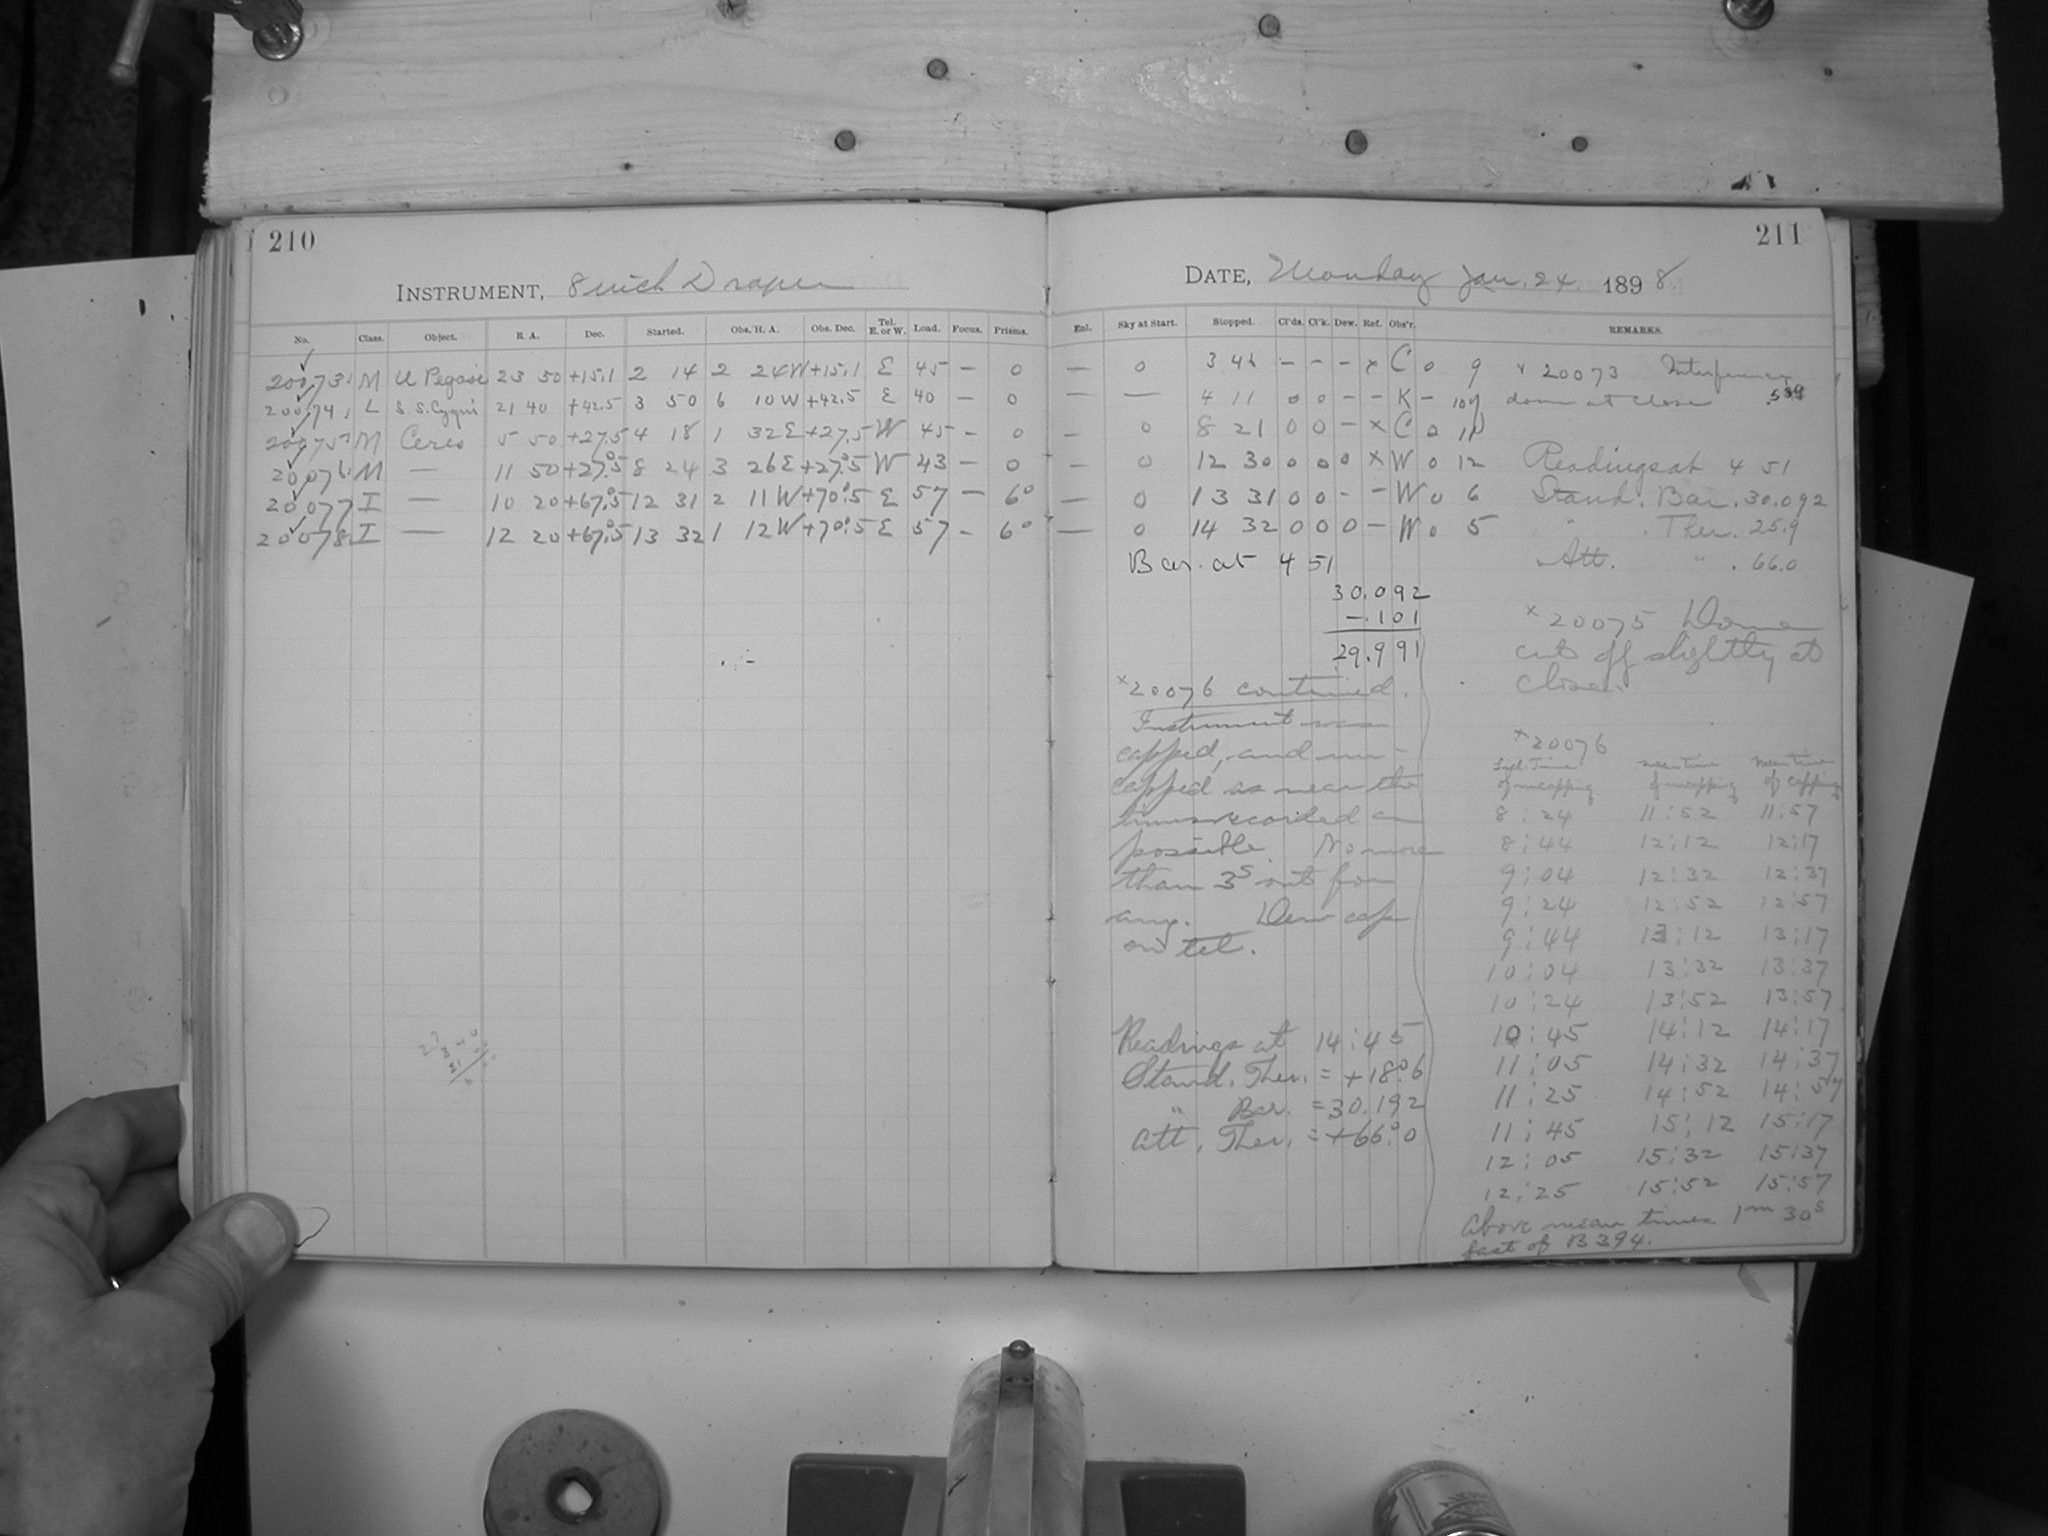 210
INSTRUMENT, 8 inch Draper
No. Class. Object. R. A. Dec. Started. Obs. H. A. Obs. Dec. Tel. E. or W. Load. Focus. Prisms.
20073 M U Pegasi 23 50 +15.1 2 14 2 24 W +15.1 E 45 – 0
20074 L S.S. Cygni 21 40 +42.5 3 50 6 10 W +42.5 E 40 – 0
20075 M Ceres 5 50 +27.5 4 18 1 32 E +27.5 W 45 – 0
20076 M — 11 50 +27°.5 8 24 3 26 E +27°.5 W 43 – 0
20077 I — 10 20 +67°.5 12 31 2 11 W +70°.5 E 57 – 6°
20078 I — 12 20 +67°.5 13 32 1 12 W +70°.5 E 57 – 6°
211
DATE, Monday Jan. 24. 1898
Enl. Sky at Start. Stopped. Cl'ds. Cl'k. Dew. Ref. Obs'r. REMARKS.
— 0 3 – – – x C 0 9
— — 4 11 0 0 – – K – 10
— 0 8 21 0 0 – x C 0 11
— 0 12 30 0 0 0 x W 0 12
— 0 13 31 0 0 – – W 0 6
— 0 14 32 0 0 0 – W 0 5
Bar. at 4 51
30.092
–.101
29.991
x 20076 continued.
Instrument was
capped, and un-
capped as near the
times recorded as
possible. No more
than 3s out for
any. Dew cap
on tel.
Readings at 14:45
Stand. Ther. = +18°.6
" Bar. = 30.192
Att. Ther. = +66°.0
x 20073 Interference
dome at close
Readings at 4 51
Stand. Bar. 30.092
" . Ther. 25.9
Att. " . 66.0
x 20075 Dome
cut off slightly at
close.
x 20076
Sid. Time of uncapping mean time of uncapping mean time of capping
8:24 11:52 11:57
8:44 12:12 12:17
9:04 12:32 12:37
9:24 12:52 12:57
9:44 13:12 13:17
10:04 13:32 13:37
10:24 13:52 13:57
10:45 14:12 14:17
11:05 14:32 14:37
11:25 14:52 14:57
11:45 15:12 15:17
12:05 15:32 15:37
12:25 15:52 15:57
Above mean times 1m 30s
fast of B 394.